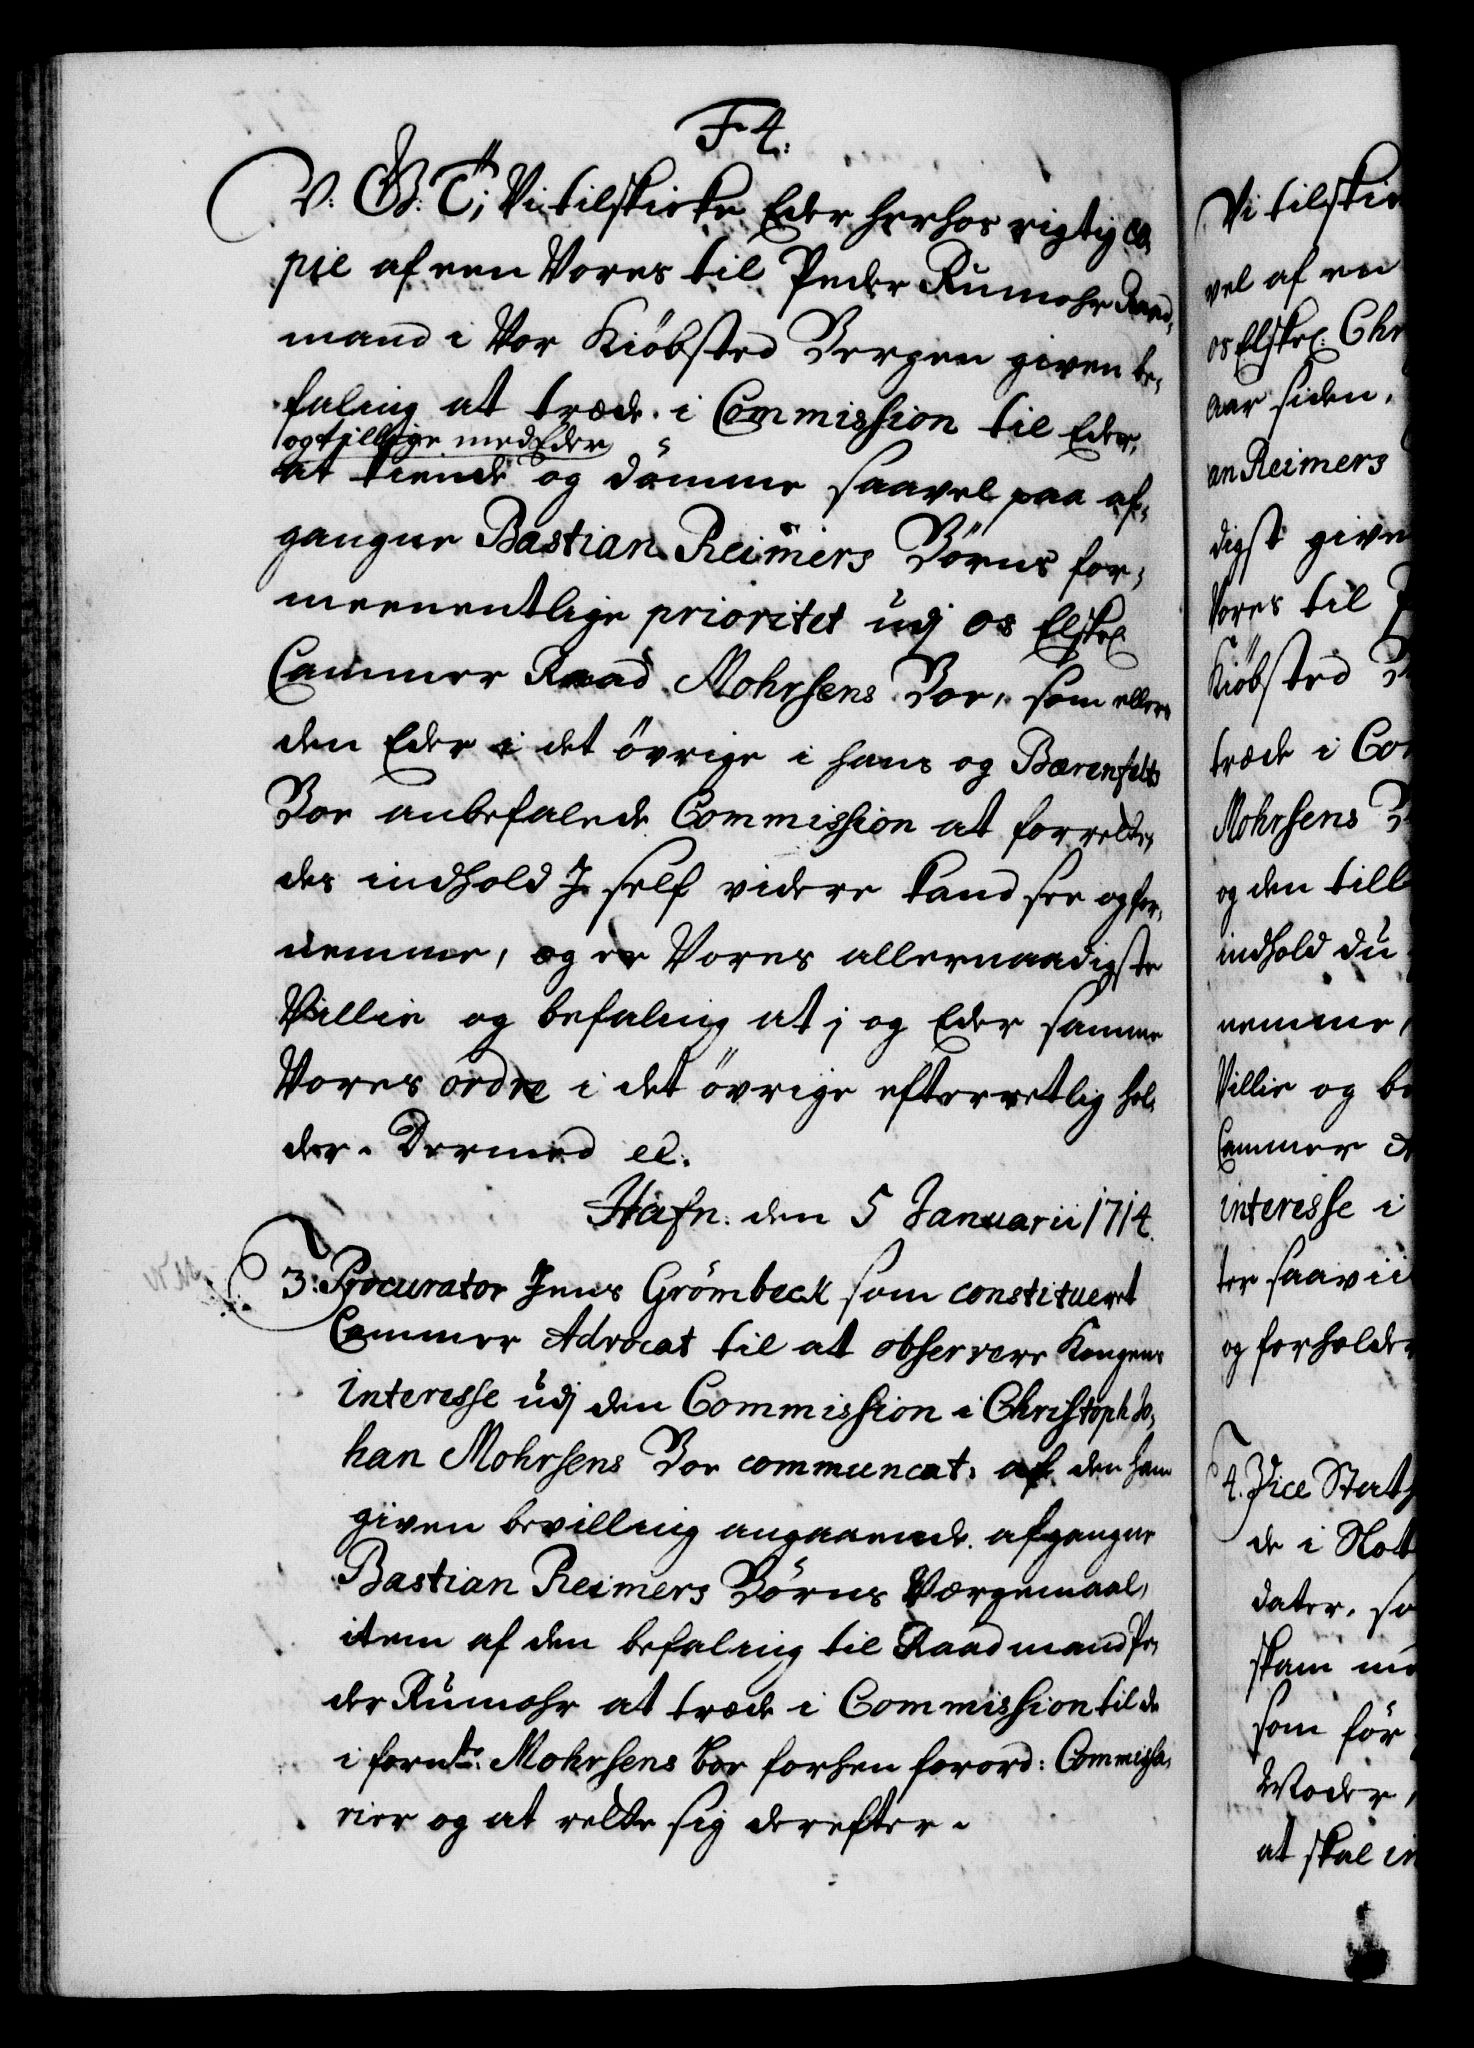 F 4.
V: G: T; Vi tilskicke Eder herhos rigtig Co-
pie af een Vores til Peder Rumohr Raad-
mand i Vor Kiöbsted Bergen given be-
faling at træde i Commission til Eder,
og tillige med Eder
at kiende og dömme saavel paa af-
gangne Bastian Reimers Börns for-
meenentlige prioritet udj os Elskel:
Cammer Raad Mohrsens Boe, som ellers
den Eder i det övrige i hans og Bærenfelts
Boe anbefalede Commission at forrette,
des indhold I self videre kand see og for-
nemme, og er Vores allernaadigste
Villie og befaling at j og Eder samme
Vores ordre i det övrige efterretlig hol-
der. Dermed etc.
Hafn: den 5 Januarii 1714.
3. Procurator Jens Grömbeck som constitueret
Cammer Advocat til at observere Kongens
interesse udj den Commission i Christoph Jo-
han Mohrsens Boe communcat: af den ham
given bevilling angaaende afgangne
Bastian Reimers Börns Værgemaal,
item af den befaling til Raadmand Pe-
der Rumohr at træde i Commission til de
i fornte: Mohrsens boe forhen forord: Commissa-
rier og at rette sig derefter.
Vi tilskic
vel af en
os Elskel: Chr
aar siden,
an Reimers
digst given
Vores til P
Kiöbsted B
træde i Com
Mohrsens B
og den till
indhold du
nemme,
Villie og be
Cammer A
interesse i
ter saavii
og forholder
4. Vice Stath
de i Not
dater, so
skam me
som för
Moder,
at skal in